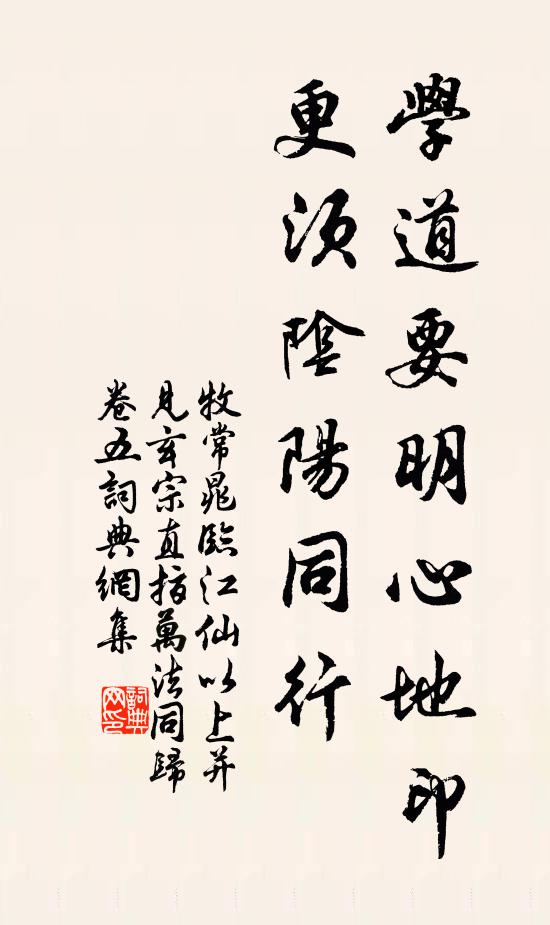 學道要明心地印
更須陰陽同行
牧常晁臨江仙以上并
見玄宗直指萬法同歸
卷五詞典網集
詞典網印